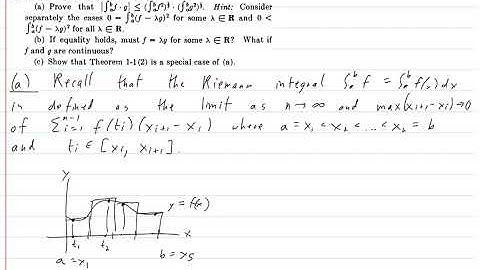 (a) Prove that |∫ₐᵇ f · g| ≤ (∫ₐᵇ f²)^½ · (∫ₐᵇ g²)^½. Hint: Consider
separately the cases 0 = ∫ₐᵇ (f − λg)² for some λ ∈ R and 0 <
∫ₐᵇ (f − λg)² for all λ ∈ R.
(b) If equality holds, must f = λg for some λ ∈ R? What if
f and g are continuous?
(c) Show that Theorem 1-1(2) is a special case of (a).
(a) Recall that the Riemann integral ∫ₐᵇ f = ∫ₐᵇ f(x) dx
is defined as the limit as n→∞ and max(xᵢ₊₁-xᵢ)→0
of Σᵢ₌₁ⁿ⁻¹ f(tᵢ)(xᵢ₊₁-xᵢ) where a=x₁<x₂<...<xₙ=b
and tᵢ ∈ [xᵢ, xᵢ₊₁].
y
y = f(x)
x
t₁ t₂
a = x₁
b = x₅